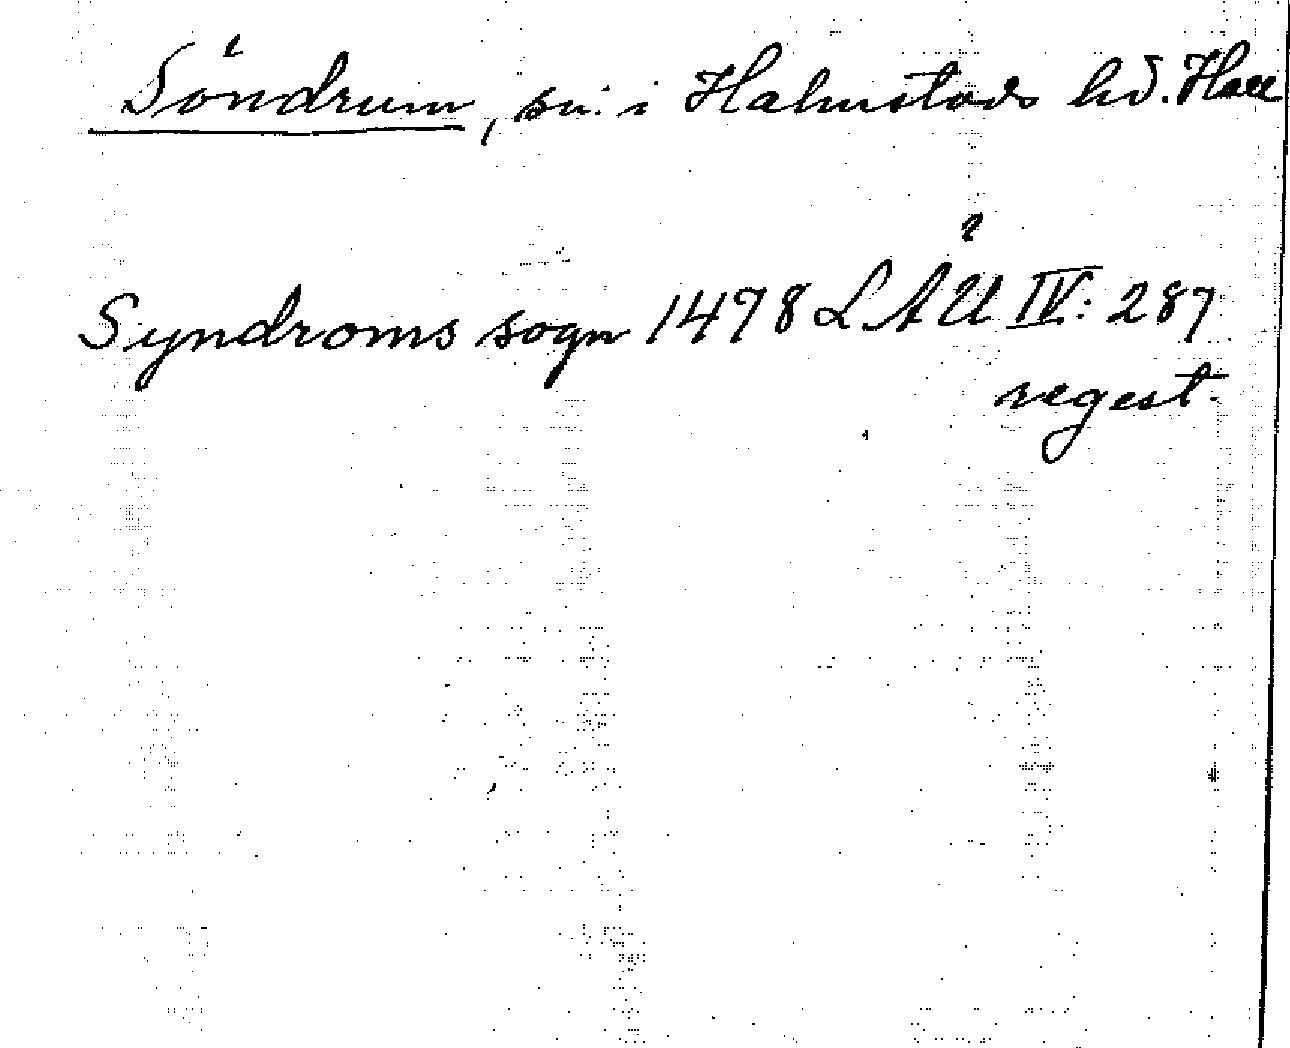 Söndrum, sn. i Halmstads hd. Hall
Syndroms sogn 1478 LÅU IV: 287
regest.